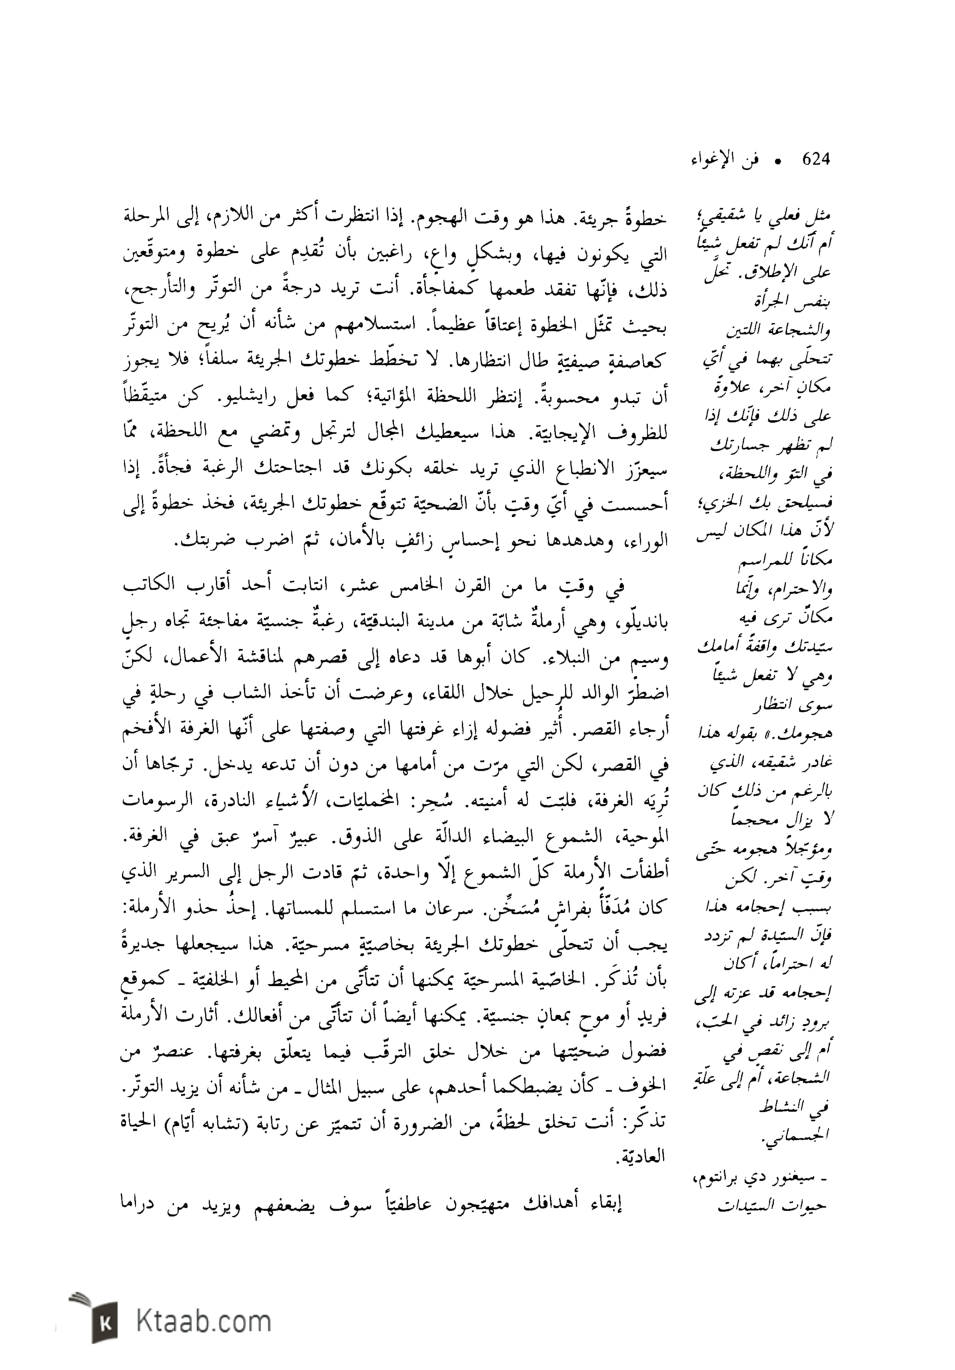 624 • فن الإغواء
مثل فعلي يا شقيقي؛
أم أنّك لم تفعل شيئاً
على الإطلاق. تحلَّ
بنفس الجرأة
والشجاعة اللتين
تتحلّى بهما في أيّ
مكانٍ آخر، علاوةً
على ذلك فإنّك إذا
لم تظهر جسارتك
في التوّ واللحظة،
فسيلحق بك الخزي؛
لأنّ هذا المكان ليس
مكاناً للمراسم
والاحترام، وإنّما
مكانٌ ترى فيه
سيّدتك واقفةً أمامك
وهي لا تفعل شيئاً
سوى انتظار
هجومك.» بقوله هذا
غادر شقيقه، الذي
بالرغم من ذلك كان
لا يزال محجماً
ومؤجّلاً هجومه حتّى
وقتٍ آخر. لكن
بسبب إحجامه هذا
فإنّ السيّدة لم تزدد
له احتراماً، أكان
إحجامه قد عزته إلى
برودٍ زائد في الحبّ،
أم إلى نقصٍ في
الشجاعة، أم إلى علّةٍ
في النشاط
الجسماني.
ـ سيغنور دي برانتوم،
حيوات السيّدات
خطوةً جريئة. هذا هو وقت الهجوم. إذا انتظرت أكثر من اللازم، إلى المرحلة
التي يكونون فيها، وبشكلٍ واعٍ، راغبين بأن تُقدِم على خطوة ومتوقّعين
ذلك، فإنّها تفقد طعمها كمفاجأة. أنت تريد درجةً من التوتّر والتأرجح،
بحيث تمثّل الخطوة إعتاقاً عظيماً. استسلامهم من شأنه أن يُريح من التوتّر
كعاصفةٍ صيفيّةٍ طال انتظارها. لا تخطّط خطوتك الجريئة سلفاً؛ فلا يجوز
أن تبدو محسوبةً. إنتظر اللحظة المؤاتية؛ كما فعل رايشليو. كن متيقّظاً
للظروف الإيجابيّة. هذا سيعطيك المجال لترتجل وتمضي مع اللحظة، ممّا
سيعزّز الانطباع الذي تريد خلقه بكونك قد اجتاحتك الرغبة فجأةً. إذا
أحسست في أيّ وقتٍ بأنّ الضحيّة تتوقّع خطوتك الجريئة، فخذ خطوةً إلى
الوراء، وهدهدها نحو إحساسٍ زائفٍ بالأمان، ثمّ اضرب ضربتك.
في وقتٍ ما من القرن الخامس عشر، انتابت أحد أقارب الكاتب
بانديلّو، وهي أرملةٌ شابّة من مدينة البندقيّة، رغبةٌ جنسيّة مفاجئة تجاه رجلٍ
وسيمٍ من النبلاء. كان أبوها قد دعاه إلى قصرهم لمناقشة الأعمال، لكنّ
اضطرّ الوالد للرحيل خلال اللقاء، وعرضت أن تأخذ الشاب في رحلةٍ في
أرجاء القصر. أُثير فضوله إزاء غرفتها التي وصفتها على أنّها الغرفة الأفخم
في القصر، لكن التي مرّت من أمامها من دون أن تدعه يدخل. ترجّاها أن
تُرِيَه الغرفة، فلبّت له أمنيته. سُحِر: المخمليّات، الأشياء النادرة، الرسومات
الموحية، الشموع البيضاء الدالّة على الذوق. عبيرٌ آسرٌ عبق في الغرفة.
أطفأت الأرملة كلّ الشموع إلّا واحدة، ثمّ قادت الرجل إلى السرير الذي
كان مُدَفّأً بفراشٍ مُسَخِّن. سرعان ما استسلم للمساتها. إحذُ حذو الأرملة:
يجب أن تتحلّى خطوتك الجريئة بخاصيّةٍ مسرحيّة. هذا سيجعلها جديرةً
بأن تُذكَر. الخاصّية المسرحيّة يمكنها أن تتأتّى من المحيط أو الخلفيّة ـ كموقعٍ
فريدٍ أو موحٍ بمعانٍ جنسيّة. يمكنها أيضاً أن تتأتّى من أفعالك. أثارت الأرملة
فضول ضحيّتها من خلال خلق الترقّب فيما يتعلّق بغرفتها. عنصرٌ من
الخوف ـ كأن يضبطكما أحدهم، على سبيل المثال ـ من شأنه أن يزيد التوتّر.
تذكّر: أنت تخلق لحظةً، من الضرورة أن تتميّز عن رتابة (تشابه أيّام) الحياة
العاديّة.
إبقاء أهدافك متهيّجون عاطفيّاً سوف يضعفهم ويزيد من دراما
K Ktaab.com